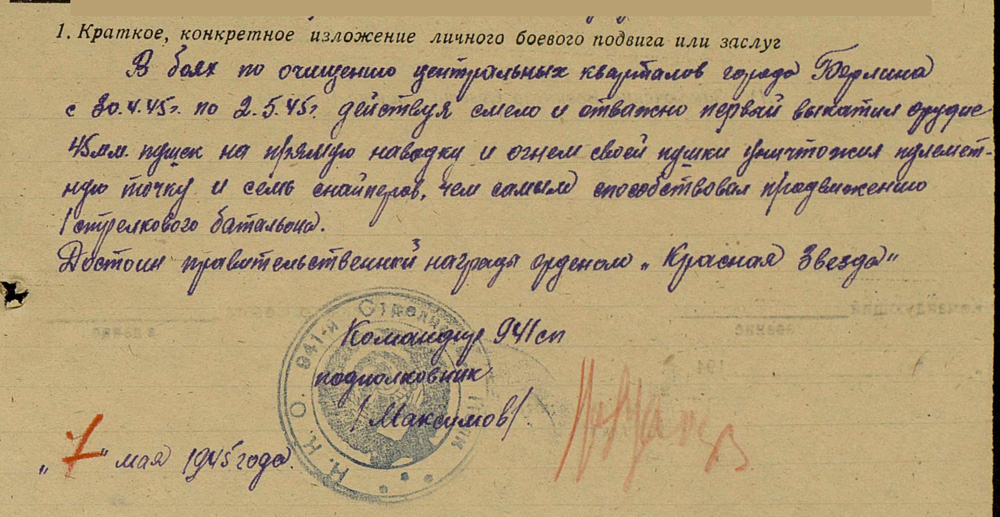 1. Краткое, конкретное изложение личного боевого подвига или заслуг
В боях по очищению центральных кварталов города Берлина
с 30.4.45г. по 2.5.45г. действуя смело и отважно первый выкатил орудие
45мм. пушек на прямую наводку и огнем своей пушки уничтожил пулемет-
ную точку и семь снайперов, чем самым способствовал продвижению
1 стрелкового батальона.
Достоин правительственной награды орденом „Красная Звезда"
Командир 941 сп
подполковник
/Максимов/.
„7" мая 1945 года.
Н. К. О. 941-й Стрелковый Полк